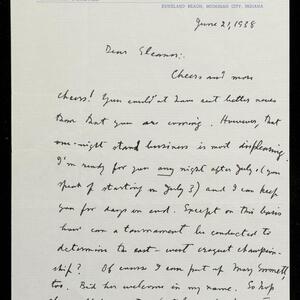 DUNELAND BEACH, MICHIGAN CITY, INDIANA
June 21, 1938
Dear Eleanor:
Cheers and more
cheers! You could'nt have sent better news
than that you are coming. However, that
one-night stand business is most displeasing.
I'm ready for you any night after July 1 (you
speak of starting on July 3) and I can keep
you for days on end. Except on this basis
how can a tournament be conducted to
determine the east-west croquet champion-
ship? Of course I can put up Mary Emmett,
too. Bid her welcome in my name. So hop